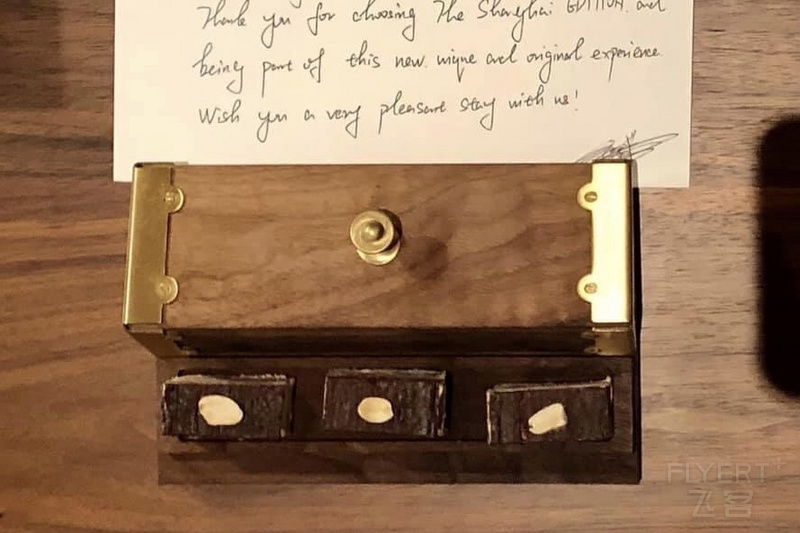 Thank you for choosing The Shanghai EDITION. and
being part of this new. unique and original experience.
Wish you a very pleasant stay with us!
FLYERT
飞客